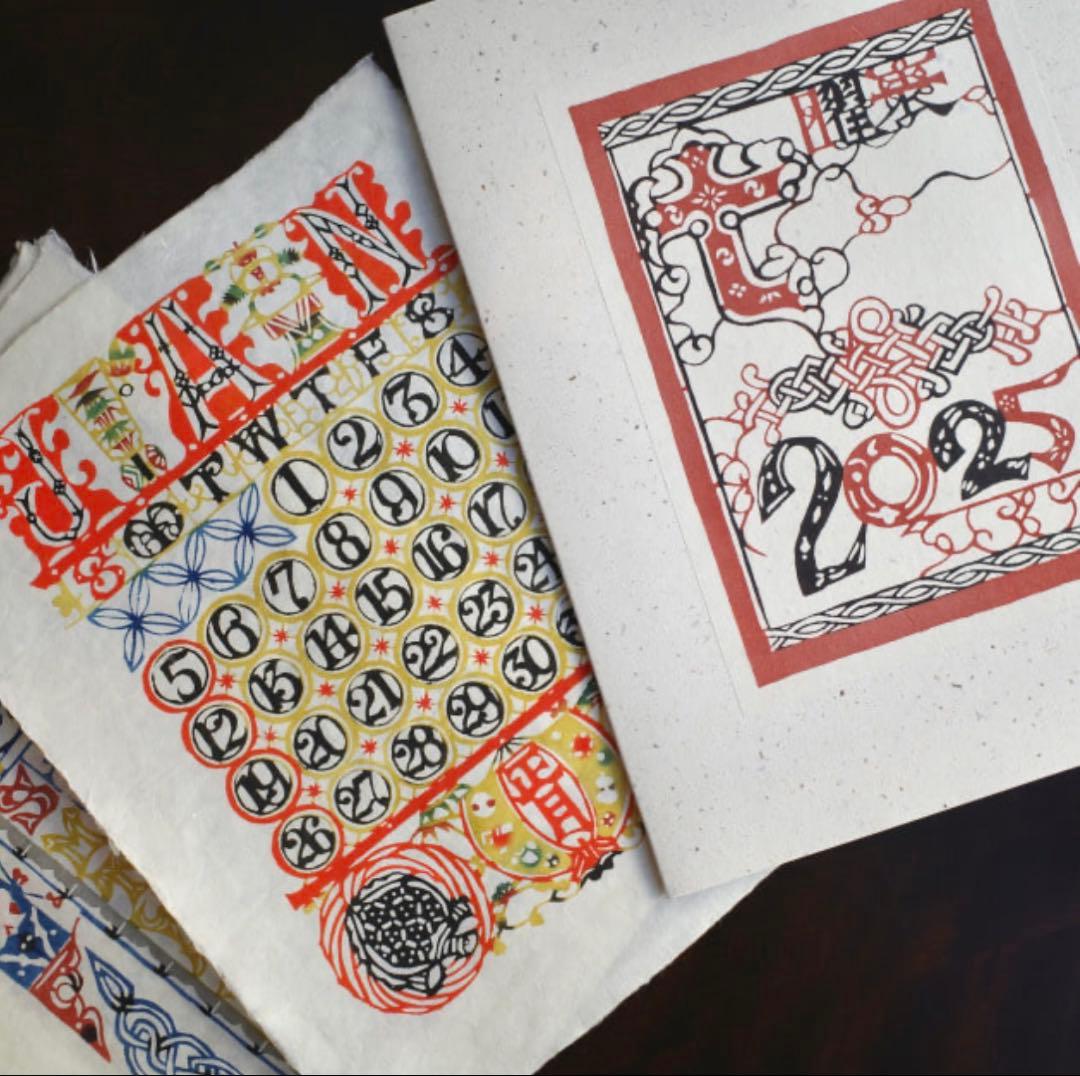 七曜表
2025
JAN
S M T W T F S
1 2 3 4
5 6 7 8 9 10
12 13 14 15 16 17
19 20 21 22 23 24
26 27 28 29 30